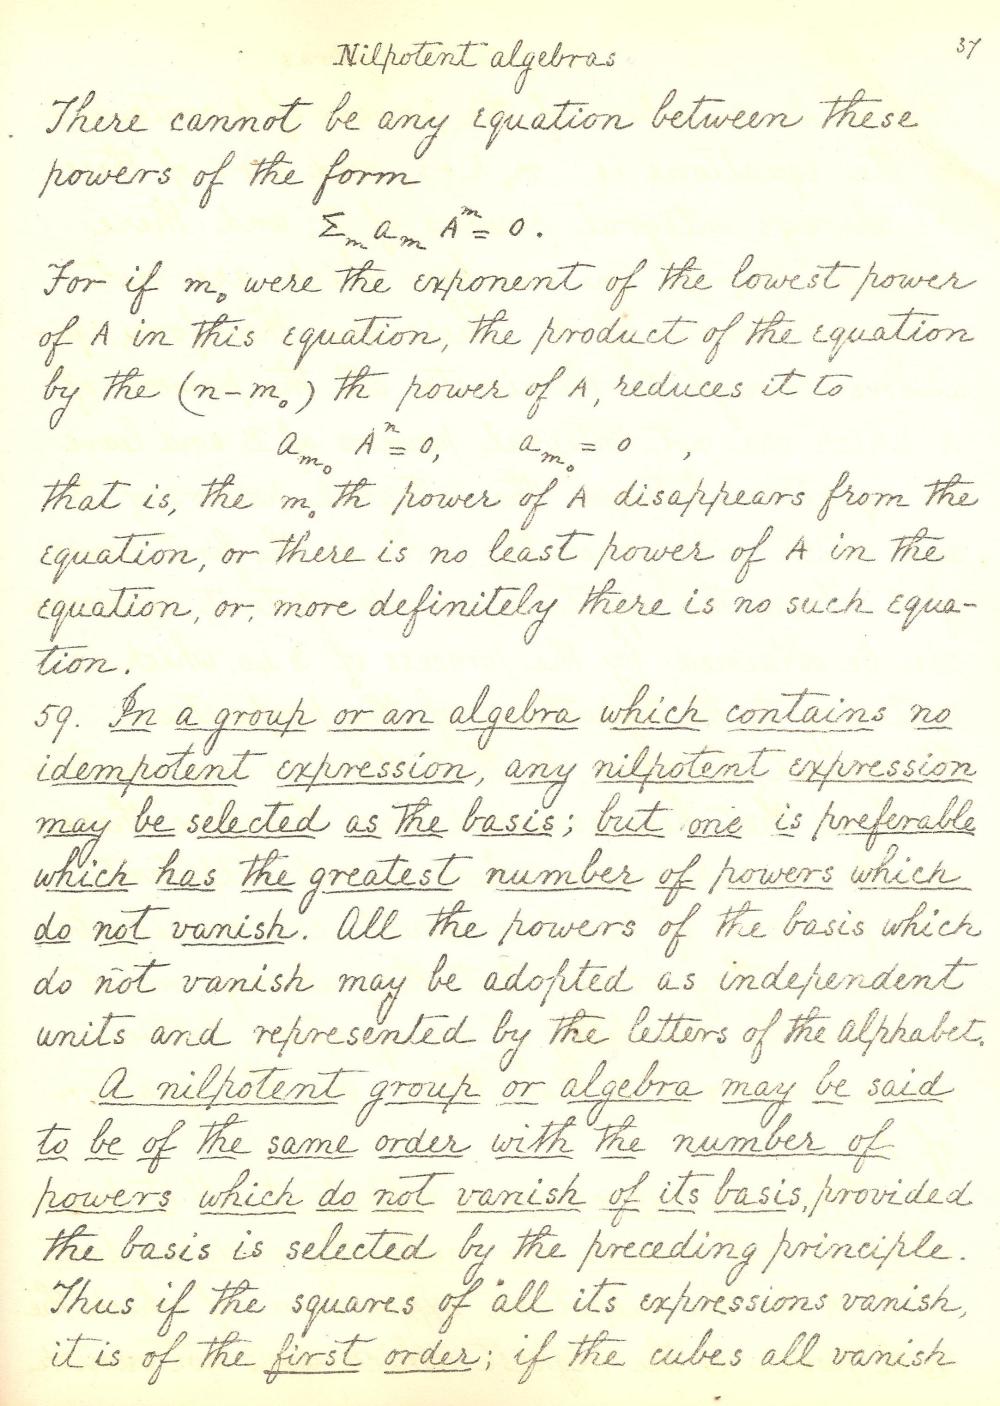 Nilpotent algebras 37
There cannot be any equation between these
powers of the form
Σₘ aₘ Aᵐ = 0.
For if m₀ were the exponent of the lowest power
of A in this equation, the product of the equation
by the (n-m₀) th power of A, reduces it to
aₘ₀ Aⁿ = 0, aₘ₀ = 0 ,
that is, the m₀ th power of A disappears from the
equation, or there is no least power of A in the
equation, or, more definitely there is no such equa-
tion.
59. In a group or an algebra which contains no
idempotent expression, any nilpotent expression
may be selected as the basis; but one is preferable
which has the greatest number of powers which
do not vanish. All the powers of the basis which
do not vanish may be adopted as independent
units and represented by the letters of the alphabet.
A nilpotent group or algebra may be said
to be of the same order with the number of
powers which do not vanish of its basis, provided
the basis is selected by the preceding principle.
Thus if the squares of all its expressions vanish,
it is of the first order; if the cubes all vanish